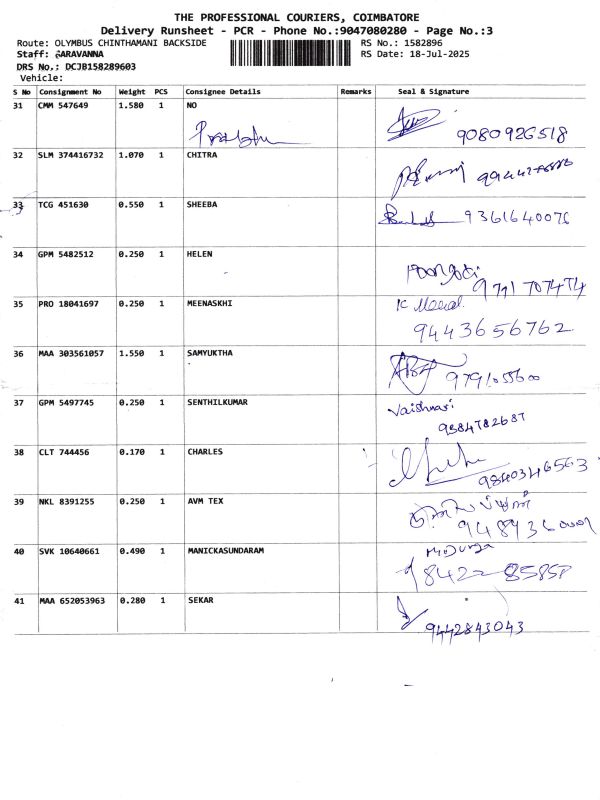 THE PROFESSIONAL COURIERS, COIMBATORE
Delivery Runsheet - PCR - Phone No.:9047080280 - Page No.:3
Route: OLYMBUS CHINTHAMANI BACKSIDE RS No.: 1582896
Staff: SARAVANNA RS Date: 18-Jul-2025
DRS No.: DCJB158289603
Vehicle:
S No Consignment No Weight PCS Consignee Details Remarks Seal & Signature
31 CMM 547649 1.580 1 NO
9080926518
32 SLM 374416732 1.070 1 CHITRA
33 TCG 451630 0.550 1 SHEEBA
9361640076
34 GPM 5482512 0.250 1 HELEN
9791707474
35 PRO 18041697 0.250 1 MEENASKHI
K Meenal
9443656762
36 MAA 303561057 1.550 1 SAMYUKTHA
37 GPM 5497745 0.250 1 SENTHILKUMAR
Vaishnavi
9384782687
38 CLT 744456 0.170 1 CHARLES
9840346563
39 NKL 8391255 0.250 1 AVM TEX
40 SVK 10640661 0.490 1 MANICKASUNDARAM
41 MAA 652053963 0.280 1 SEKAR
9442843043